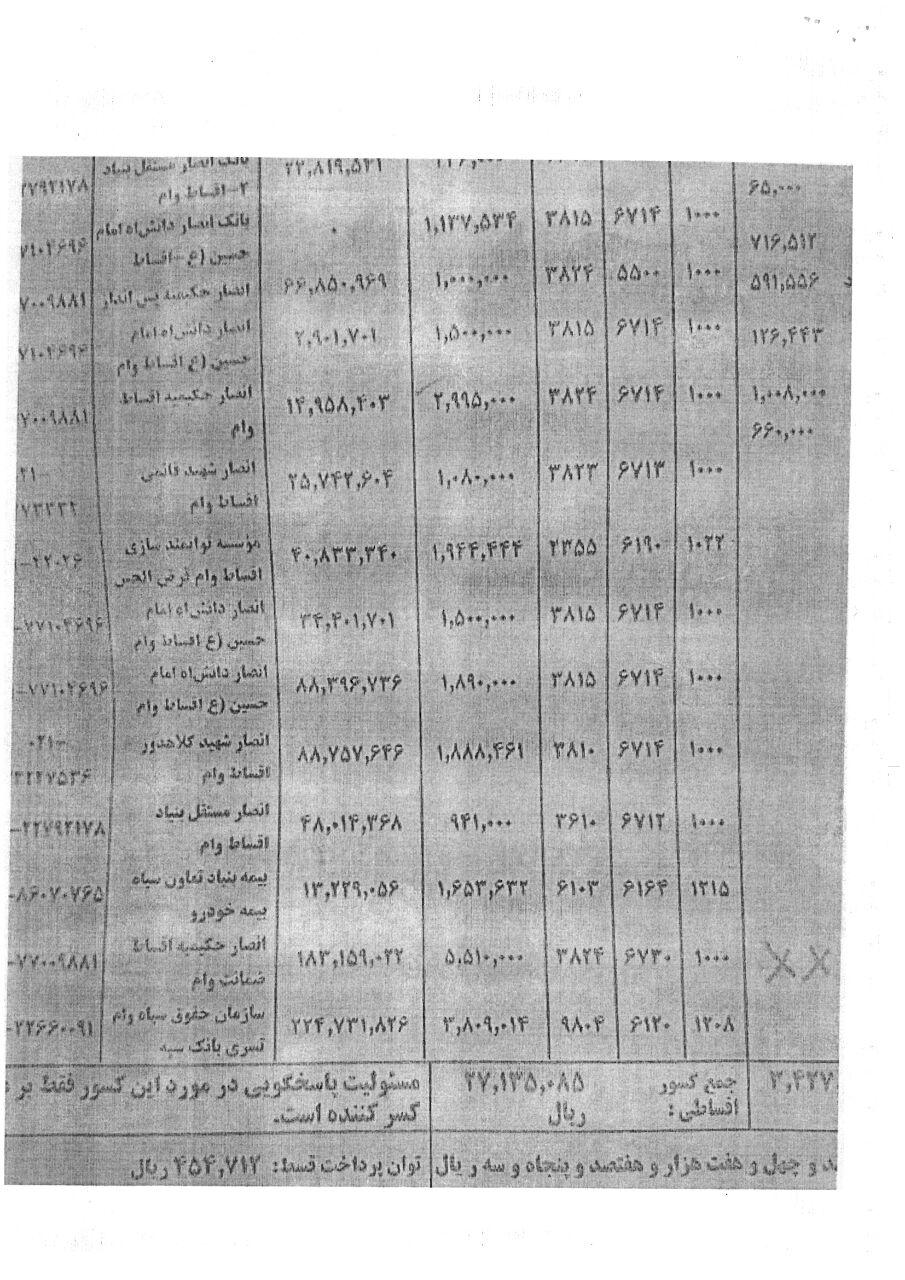 بانک انصار مستقل بنیاد ۲۲,۸۱۹,۵۲۱
۲-اقساط وام ۲۷۹۲۱۷۸
۶۵,۰۰۰
۱۰۰۰ ۶۷۱۴ ۳۸۱۵ ۱,۱۳۷,۵۳۴ ۰ بانک انصار دانش‌اه امام
حسین (ع -اقساط ۷۱۰۴۶۹۶
۷۱۶,۵۱۲
۵۹۱,۵۵۶ ۱۰۰۰ ۵۵۰۰ ۳۸۲۴ ۱,۰۰۰,۰۰۰ ۶۶,۸۵۰,۹۶۹ انصار حکیمیه پس انداز ۷۰۰۹۸۸۱
۱۲۶,۴۴۳ ۱۰۰۰ ۶۷۱۴ ۳۸۱۵ ۱,۵۰۰,۰۰۰ ۲,۹۰۱,۷۰۱ انصار دانش‌اه امام
حسین (ع اقساط وام ۷۱۰۴۶۹۶
۱,۰۰۸,۰۰۰ ۱۰۰۰ ۶۷۱۴ ۳۸۲۴ ۲,۹۹۵,۰۰۰ ۱۴,۹۵۸,۴۰۳ انصار حکیمیه اقساط
وام ۷۰۰۹۸۸۱
۶۶۰,۰۰۰
۱۰۰۰ ۶۷۱۳ ۳۸۲۳ ۱,۰۸۰,۰۰۰ ۲۵,۷۴۲,۶۰۴ انصار شهید قائمی
اقساط وام
۱۰۲۲ ۶۱۹۰ ۲۳۵۵ ۱,۹۴۴,۴۴۴ ۴۰,۸۳۳,۳۴۰ مؤسسه توانمند سازی
اقساط وام قرض الحس -۲۲۰۲۶
۱۰۰۰ ۶۷۱۴ ۳۸۱۵ ۱,۵۰۰,۰۰۰ ۳۴,۴۰۱,۷۰۱ انصار دانش‌اه امام
حسین (ع اقساط وام -۷۷۱۰۴۶۹۶
۱۰۰۰ ۶۷۱۴ ۳۸۱۵ ۱,۸۹۰,۰۰۰ ۸۸,۳۹۶,۷۳۶ انصار دانش‌اه امام
حسین (ع اقساط وام -۷۷۱۰۴۶۹۶
۱۰۰۰ ۶۷۱۴ ۳۸۱۰ ۱,۸۸۸,۴۶۱ ۸۸,۷۵۷,۶۴۶ انصار شهید کلاهدوز -۰۲۱
اقساط وام ۲۲۴۷۵۳۶
۱۰۰۰ ۶۷۱۲ ۳۶۱۰ ۹۴۱,۰۰۰ ۴۸,۰۱۴,۳۶۸ انصار مستقل بنیاد
اقساط وام -۲۲۷۹۲۱۷۸
۱۲۱۵ ۶۱۶۴ ۶۱۰۳ ۱,۶۵۳,۶۳۲ ۱۳,۲۲۹,۰۵۶ بیمه بنیاد تعاون سپاه
بیمه خودرو -۸۶۰۷۰۷۶۵
۱۰۰۰ ۶۷۳۰ ۳۸۲۴ ۵,۵۱۰,۰۰۰ ۱۸۳,۱۵۹,۰۲۲ انصار حکیمیه اقساط
ضمانت وام -۷۷۰۰۹۸۸۱
۱۲۰۸ ۶۱۲۰ ۹۸۰۴ ۳,۸۰۹,۰۱۴ ۲۲۴,۷۳۱,۸۲۶ سازمان حقوق سپاه وام
تسری بانک سپه -۲۲۶۶۰۰۹۱
۳,۴۲۷ جمع کسور ۲۷,۱۳۵,۰۸۵ مسئولیت پاسخگویی در مورد این کسور فقط بر
اقساطی: ریال کسر کننده است.
د و چهل و هفت هزار و هفتصد و پنجاه و سه ریال توان پرداخت قسط: ۴۵۴,۷۱۲ ریال